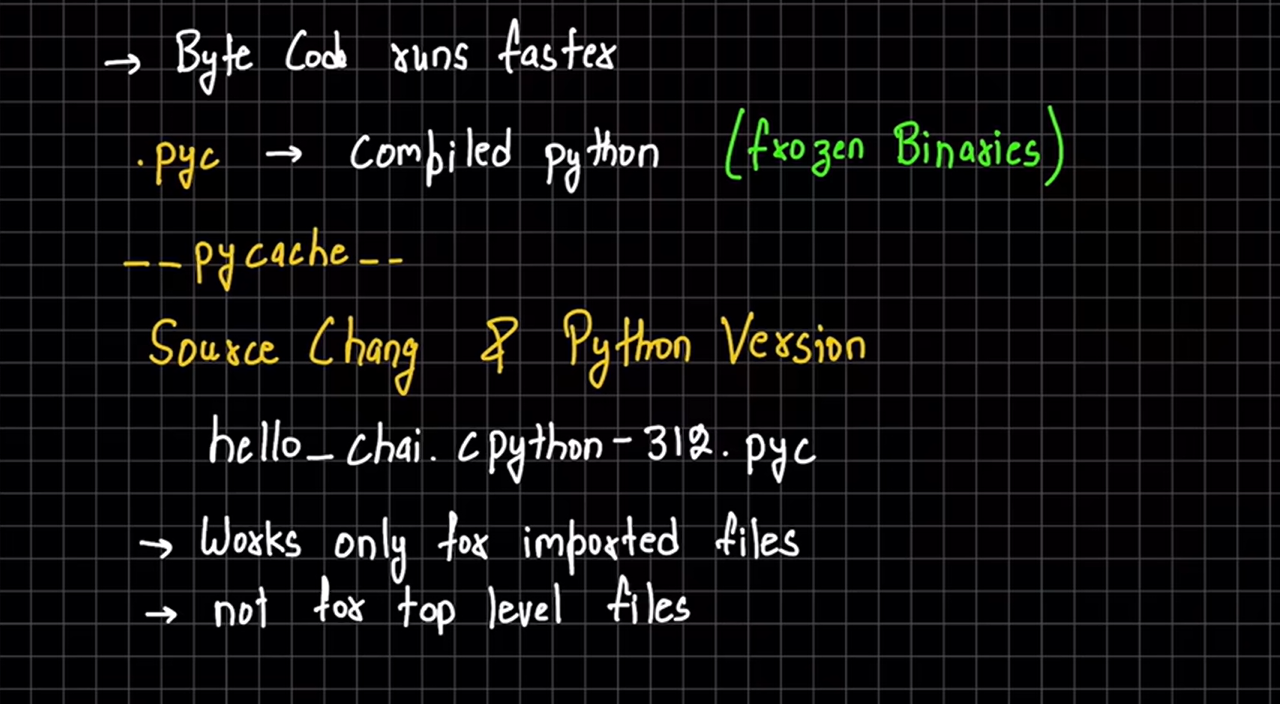 → Byte Code runs faster
.pyc → compiled python (frozen Binaries)
__pycache__
Source Chang & Python Version
hello_chai.cpython-312.pyc
→ Works only for imported files
→ not for top level files